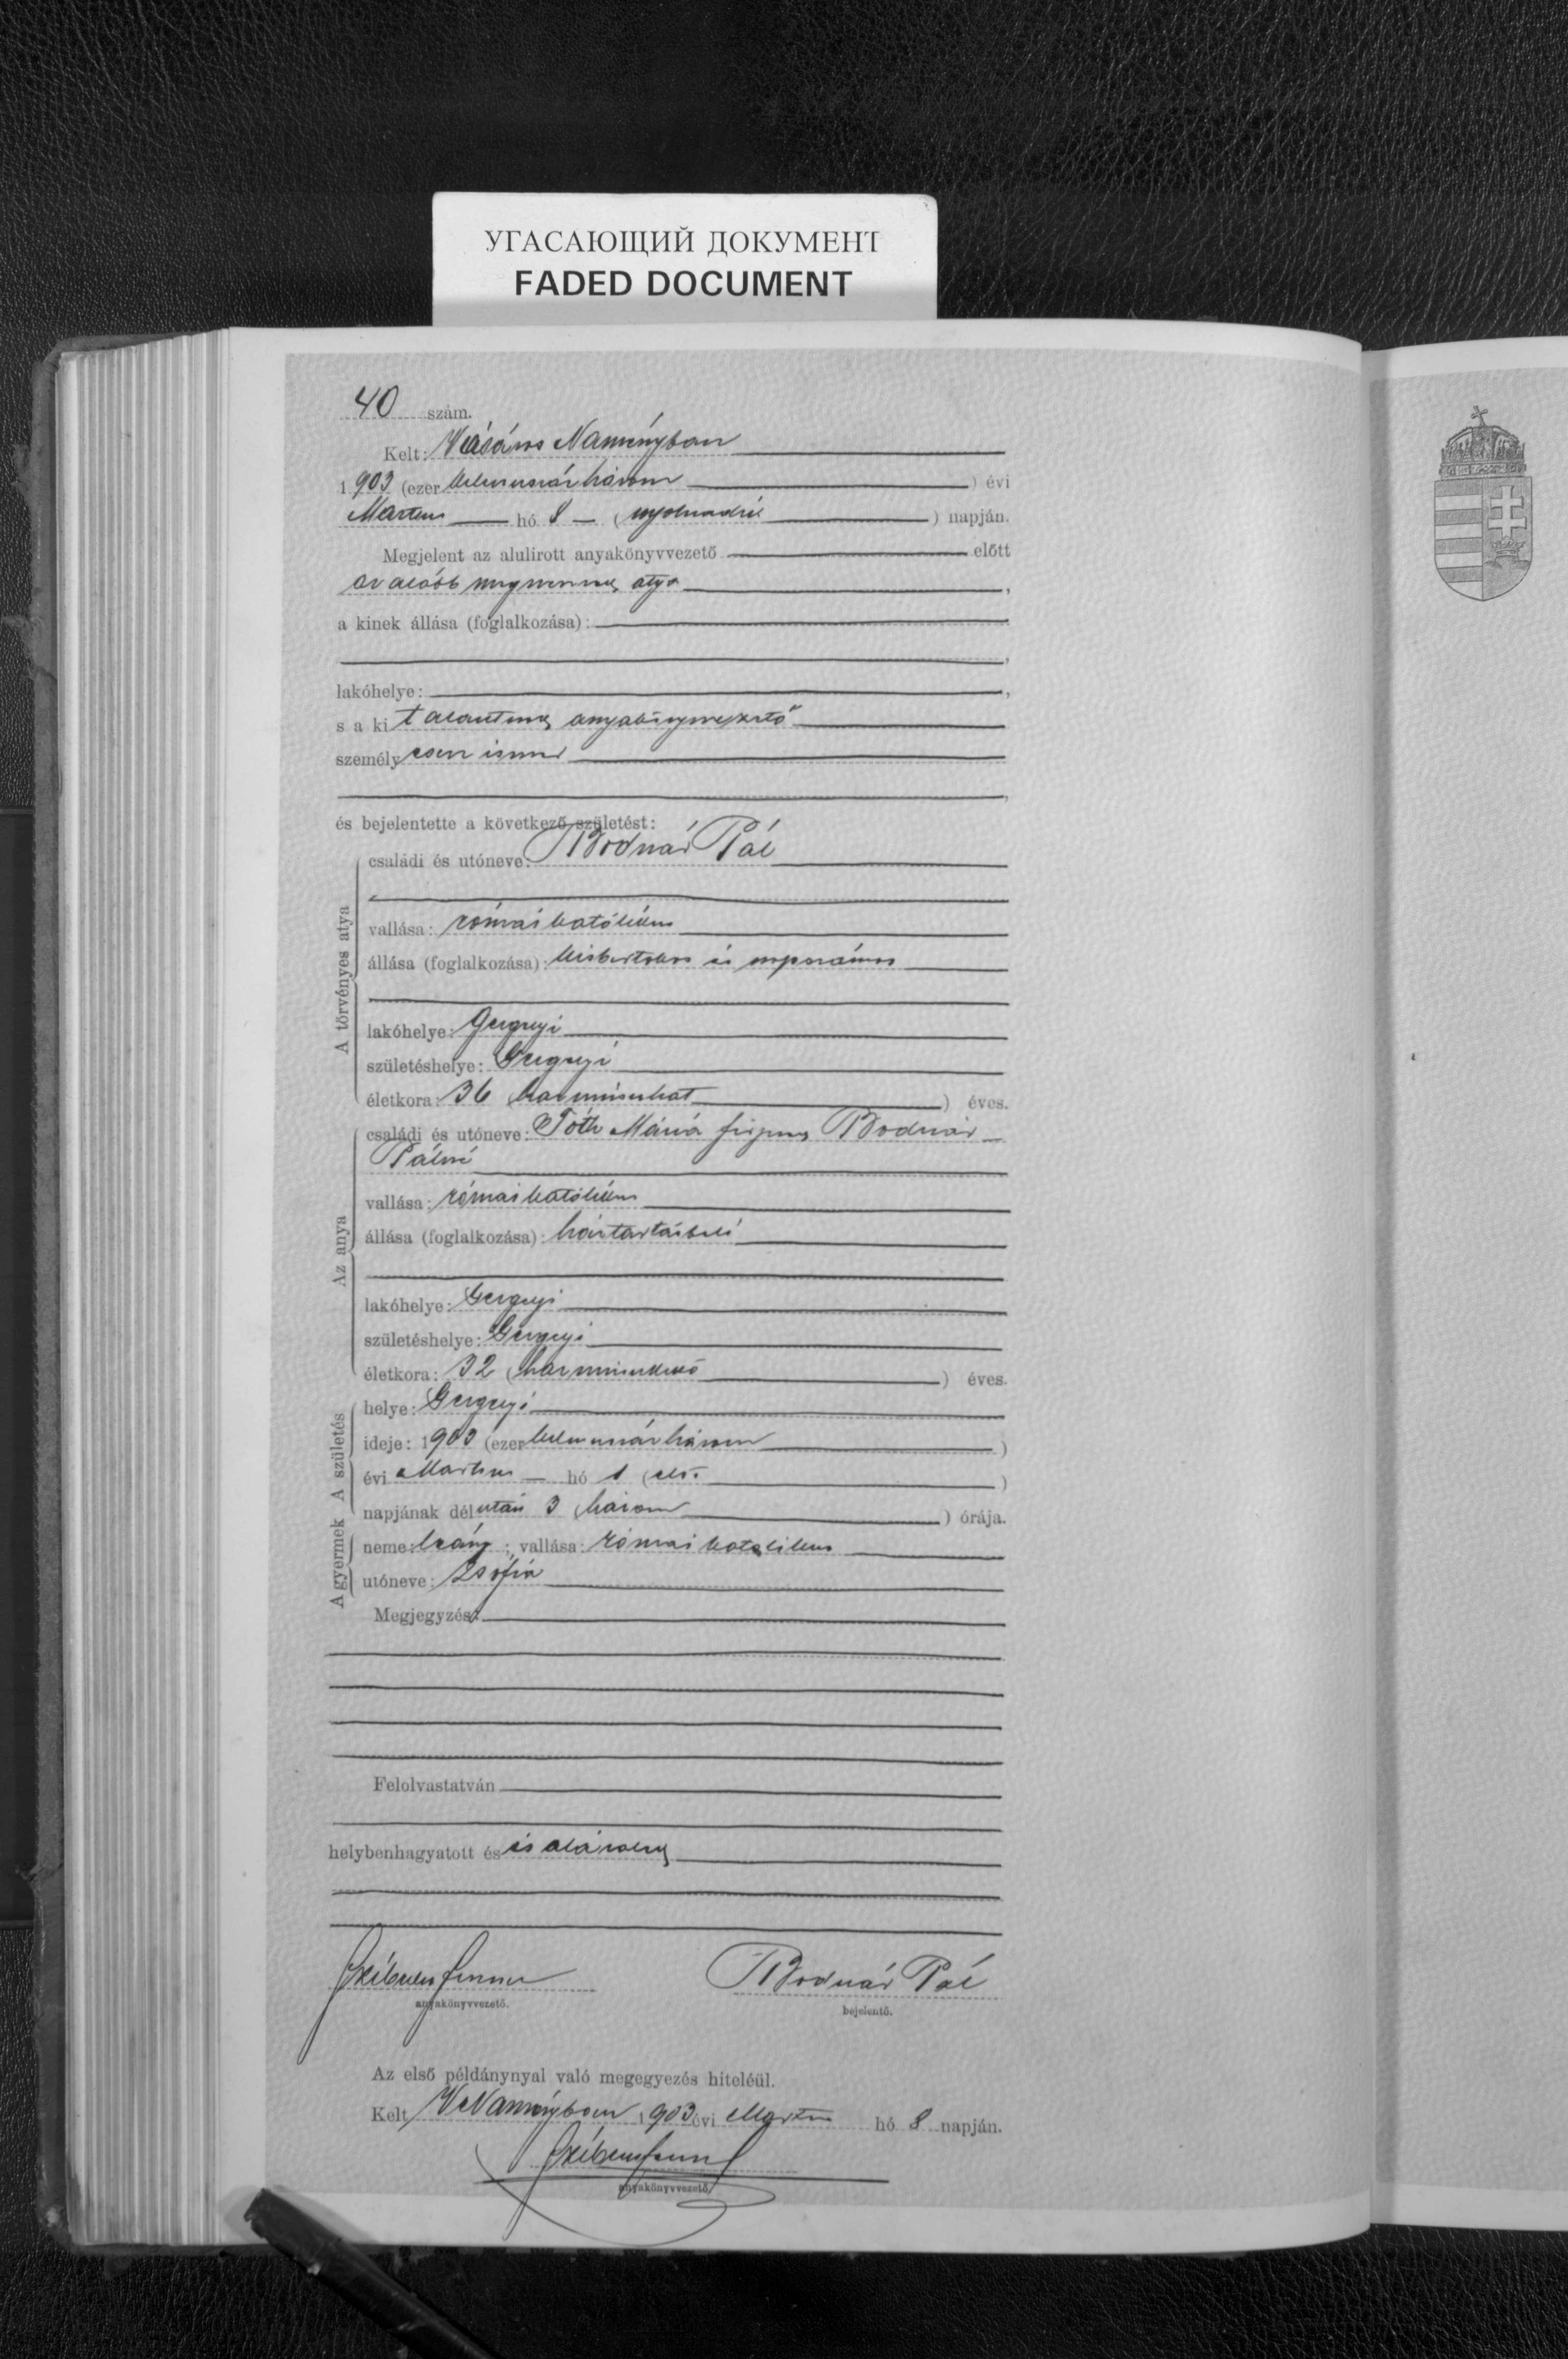 УГАСАЮЩИЙ ДОКУМЕНТ
FADED DOCUMENT
40 szám.
Kelt: Vásáros Naményban
1903 (ezer kilenczszáz három) évi
Martius hó 8 (nyolcadik) napján.
Megjelent az alulirott anyakönyvvezető előtt
az alább megnevezett atya,
a kinek állása (foglalkozása):
lakóhelye:
s a kit alantirott anyakönyvvezető
személyesen ismer
és bejelentette a következő születést:
A törvényes atya
családi és utóneve: Bodnár Pál
vallása: római katólikus
állása (foglalkozása): kisbirtokos és napszámos
lakóhelye: Gergelyi
születéshelye: Gergelyi
életkora: 36 (harminczhat) éves.
Az anya
családi és utóneve: Tóth Mária férjezett Bodnár
Pálné
vallása: római katólikus
állása (foglalkozása): háztartásbeli
lakóhelye: Gergelyi
születéshelye: Gergelyi
életkora: 32 (harminczkettő) éves.
A születés
helye: Gergelyi
ideje: 1903 (ezer kilenczszáz három)
évi Martius hó 1 (első)
napjának délután 3 (három) órája.
A gyermek
neme: leány; vallása: római katolikus
utóneve: Zsófia
Megjegyzés:
Felolvastatván
helybenhagyatott és és aláíratott
anyakönyvvezető.
Bodnár Pál
bejelentő.
Az első példánynyal való megegyezés hiteléül.
Kelt V Naményban 1903 évi Martius hó 8 napján.
anyakönyvvezető